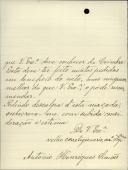 que V. Exª deve conhecer de Coimbra.
Este deve ter feito muitos pedidos
em beneficio do neto, mas ninguem
melhor do que V. Exª o pode recom-
mendar.
Pedindo desculpa d'esta maçada,
subscrevo-me com subida con-
sideração e estima
De V. Exª
António Henriques